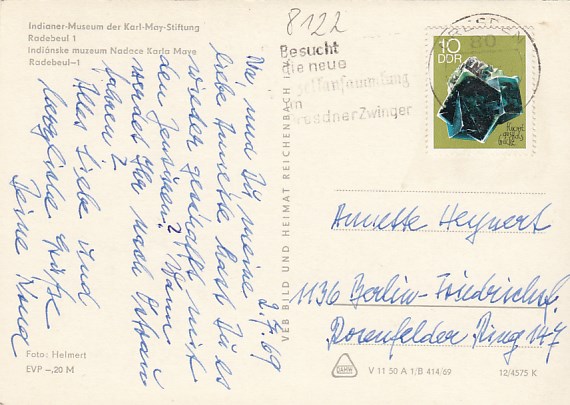 Indianer-Museum der Karl-May-Stiftung
Radebeul 1
Indiánske muzeum Nadace Karla Maye
Radebeul-1
8122
Besucht
die neue
im
Dresdner Zwinger
DRESDEN
80
10
DDR
2.7.69
Na, und Du meine
liebe Annette hast Du es
wieder geschafft mit
den Zensuren? Wann
werdet Ihr nach
fahren?
Alles Liebe und
herzliche Grüße
Deine
VEB BILD UND HEIMAT REICHENBACH
Annette Heynert
1136 Berlin-Friedrichsf.
Rosenfelder Ring 147
Foto: Helmert
EVP -,20 M
V 11 50 A 1/B 414/69
12/4575 K